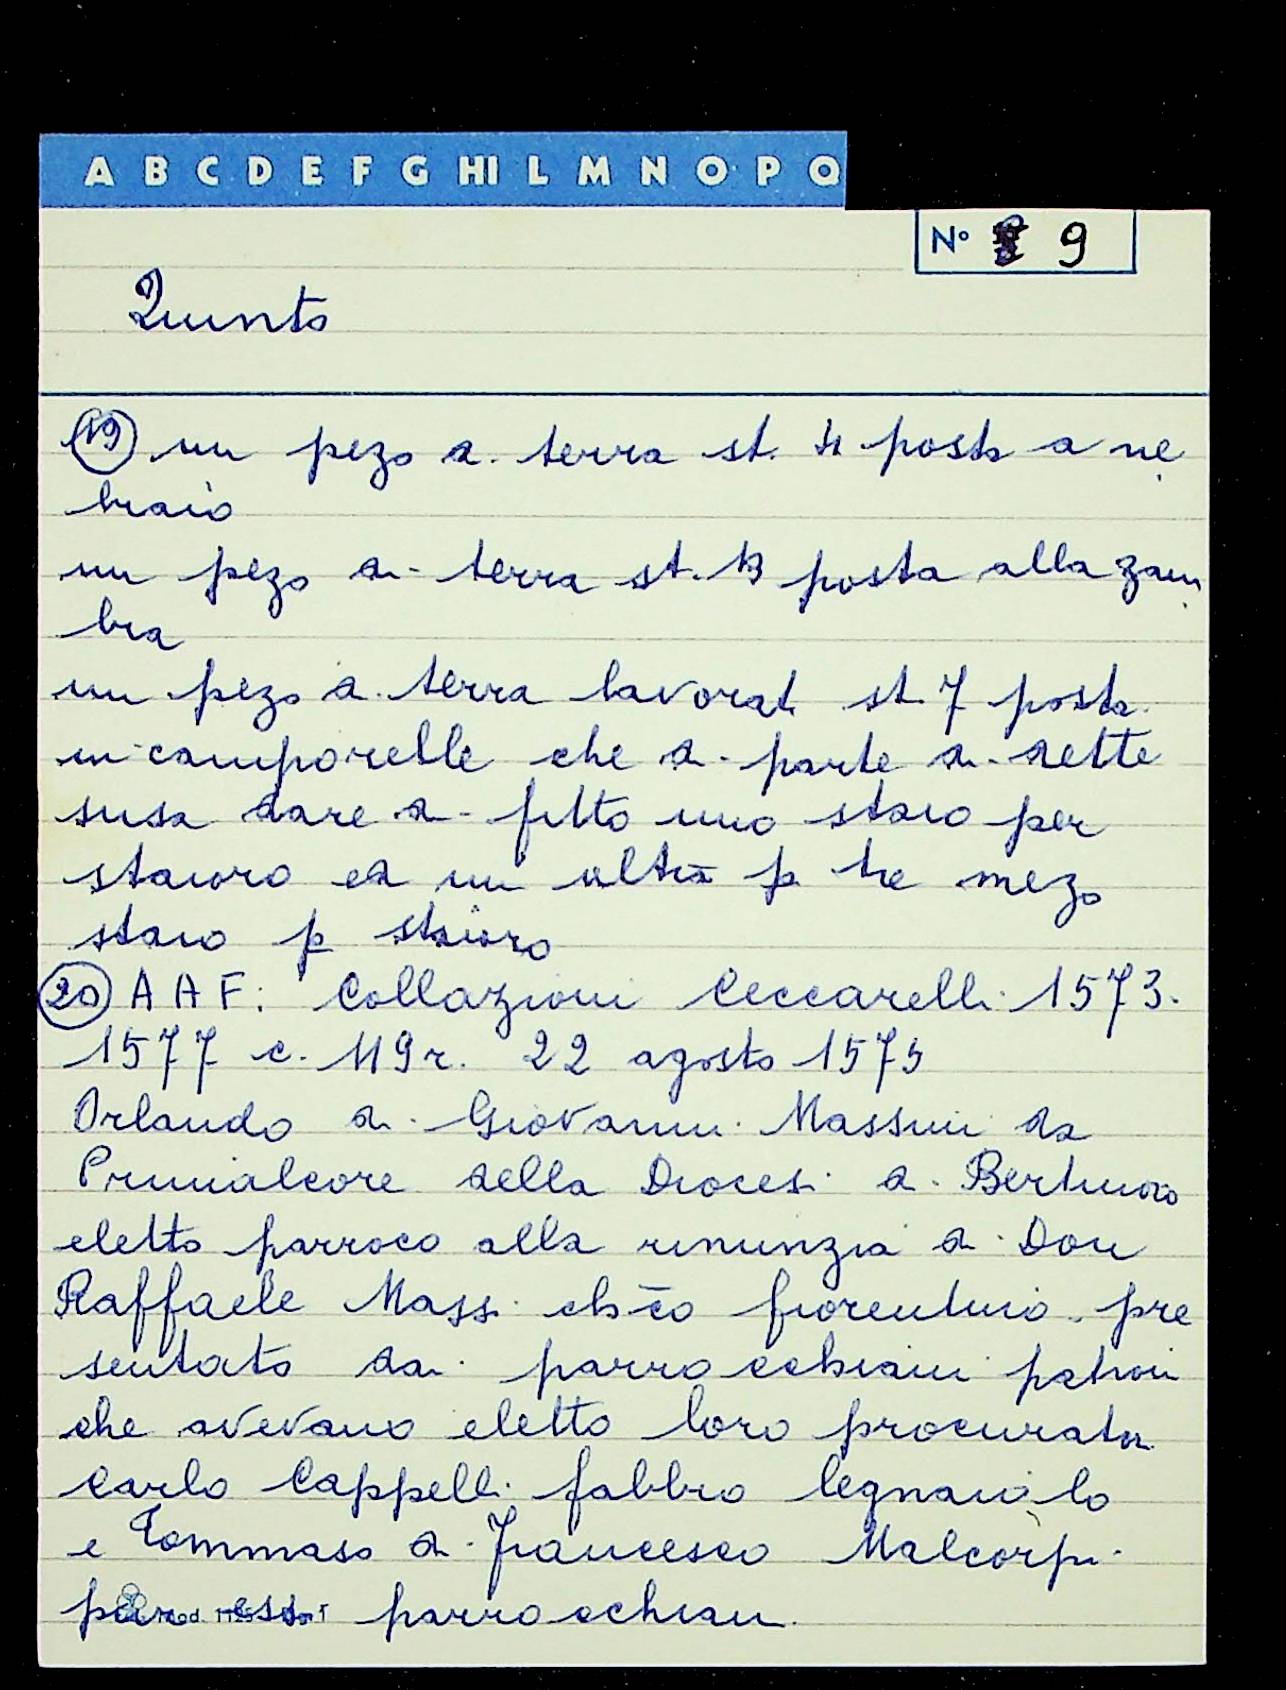 A B C D E F G HI L M N O P Q
N° 9
Quinto
(19) un pezo di terra st. 4 posto a ne
braio
un pezo di terra st. 13 posta alla zam
bra
un pezo di terra lavorat. st. 7 posta
in camporelle che di parte di dette
susa dare di fitto uno staio per
staioro ed un altra p. tre mezo
staio p staioro
(20) A A F: Collazioni Ceccarelli 1573-
1577 c. 119r. 22 agosto 1575
Orlando di Giovanni Massini da
Primalcore della Diocesi di Bertinoro
eletto parroco alla rinunzia di Don
Raffaele Massi ch co fiorentino, pre
sentato dai parrocchiani patroni
che avevano eletto loro procurator
Carlo Cappelli fabbro legnaiolo
e Tommaso di Francesco Malcorpi
pure parrocchiani